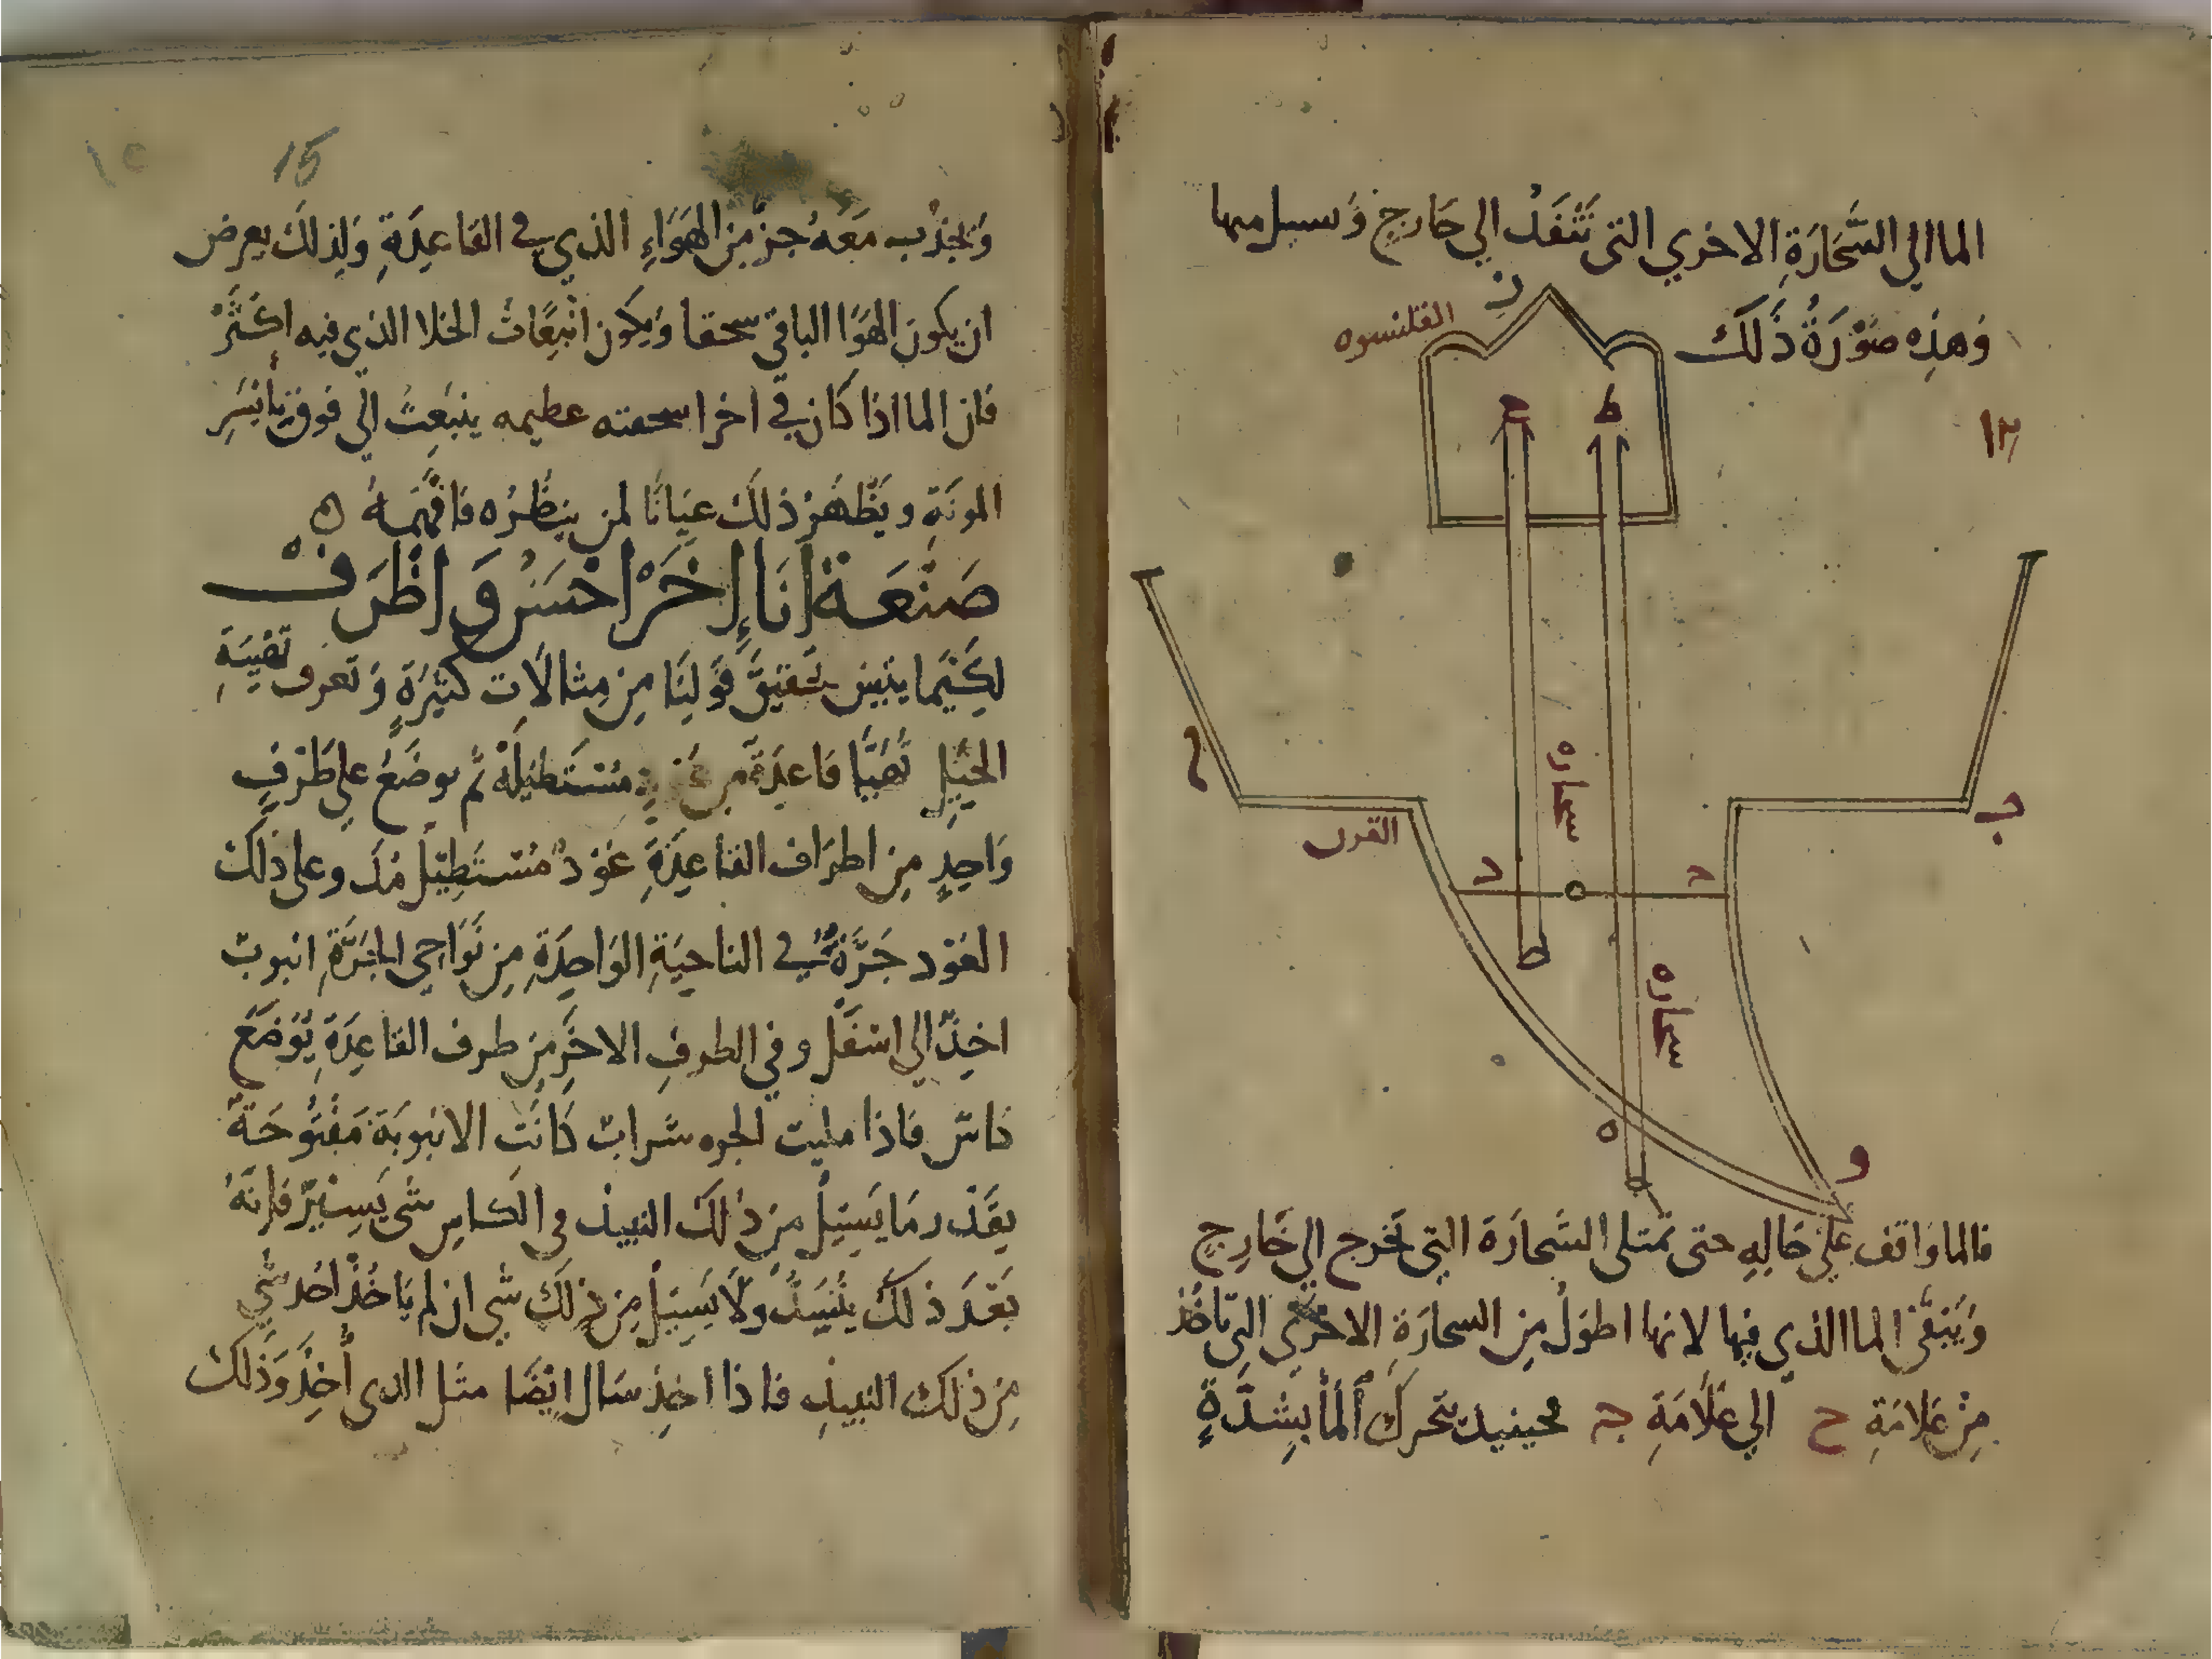 الماالي السَّحَارَةِ الاخري التي تَنْفَدُ الي خَارجٍ وَسبيل منها
وَهذِه صُوْرَةُ ذَلكَ
القلنسوه
ز
ح
ط
١٣
سحاره
سحاره
القرن
ج
د
د
ه
ط
ه
و
فالما وَاقف عَليَ حَالِهِ حتى تمتلى السَّحارَة التي تخرج الي خَارِجٍ
وَيَبْقَى الما الذي فيها لانها اطوَلُ مِن السحارَةِ الاخري التي تَاخُذ
مِنْ عَلامَةِ ح الي عَلَامَةِ ج فحينيذ يتحركَ اَلمَاُ بِشدَّةٍ
15
١٥
وَيجذب مَعَهُ جز مِن الهَوَاءِ الذي في القَاعِدَةِ وَلِذلكَ يعرض
ان يكونَ الهَوَا الباقي سحقا وَيكون انْبِعَاثُ الخلا الذي فيه اكْثَرْ
فان الما اذا كَان في اخرا سحقته عظيمه ينبَعِثُ الي فوق بأيْسَرِ
المونَةِ ويَظْهَرْ ذلكَ عيَانًا لمن ينظُرُه فَافْهَمهُ
صَنْعَة اِنَاءٍ اخَرْ احْسَنْ وَ اظْرَفْ
لِكَيْمَا يتبين تحقيق قَولِنَا مِن مِثالَات كثيْرَةٍ وَتَعرف تقيَةِ
الحِيَلِ تُهَيَّا قَاعِدَة من مُسْتَطيْلَة ثم يوضَعُ علي طَرْفٍ
وَاحِدٍ مِن اطرَاف القاعِدَةِ عَوْدٌ مُسْتَطِيْل مُدَ وعلى ذلك
العَوْد جَرَّةٌ في الناحيَةِ الوَاحِدَةِ مِن نَوَاحي الجَرَّةِ انبوبٌ
اخِذٌ الي اسْفَلْ وفي الطرفِ الاخَرِ مِن طرف القاعِدَةِ يُوْضَعُ
كَاسٌ فَاذا مليت الجره شرابٌ كَانَت الانبوبَة مَفْتُوحَةً
بِقَدْرِ مَا يَسِيْلُ مِن ذلكَ النبيذ في الكاسِ شي يَسِيْرٌ فَانَهُ
بَعْدَ ذلكَ يَنْسَدُّ ولَا يَسِيْلُ مِن ذلكَ شي ان لم يَاخُذْ احُد شي
مِن ذلك النبيذِ فاذا اخِذ سَال ايْضًا مثل الذي أُخِذَ وَذلك